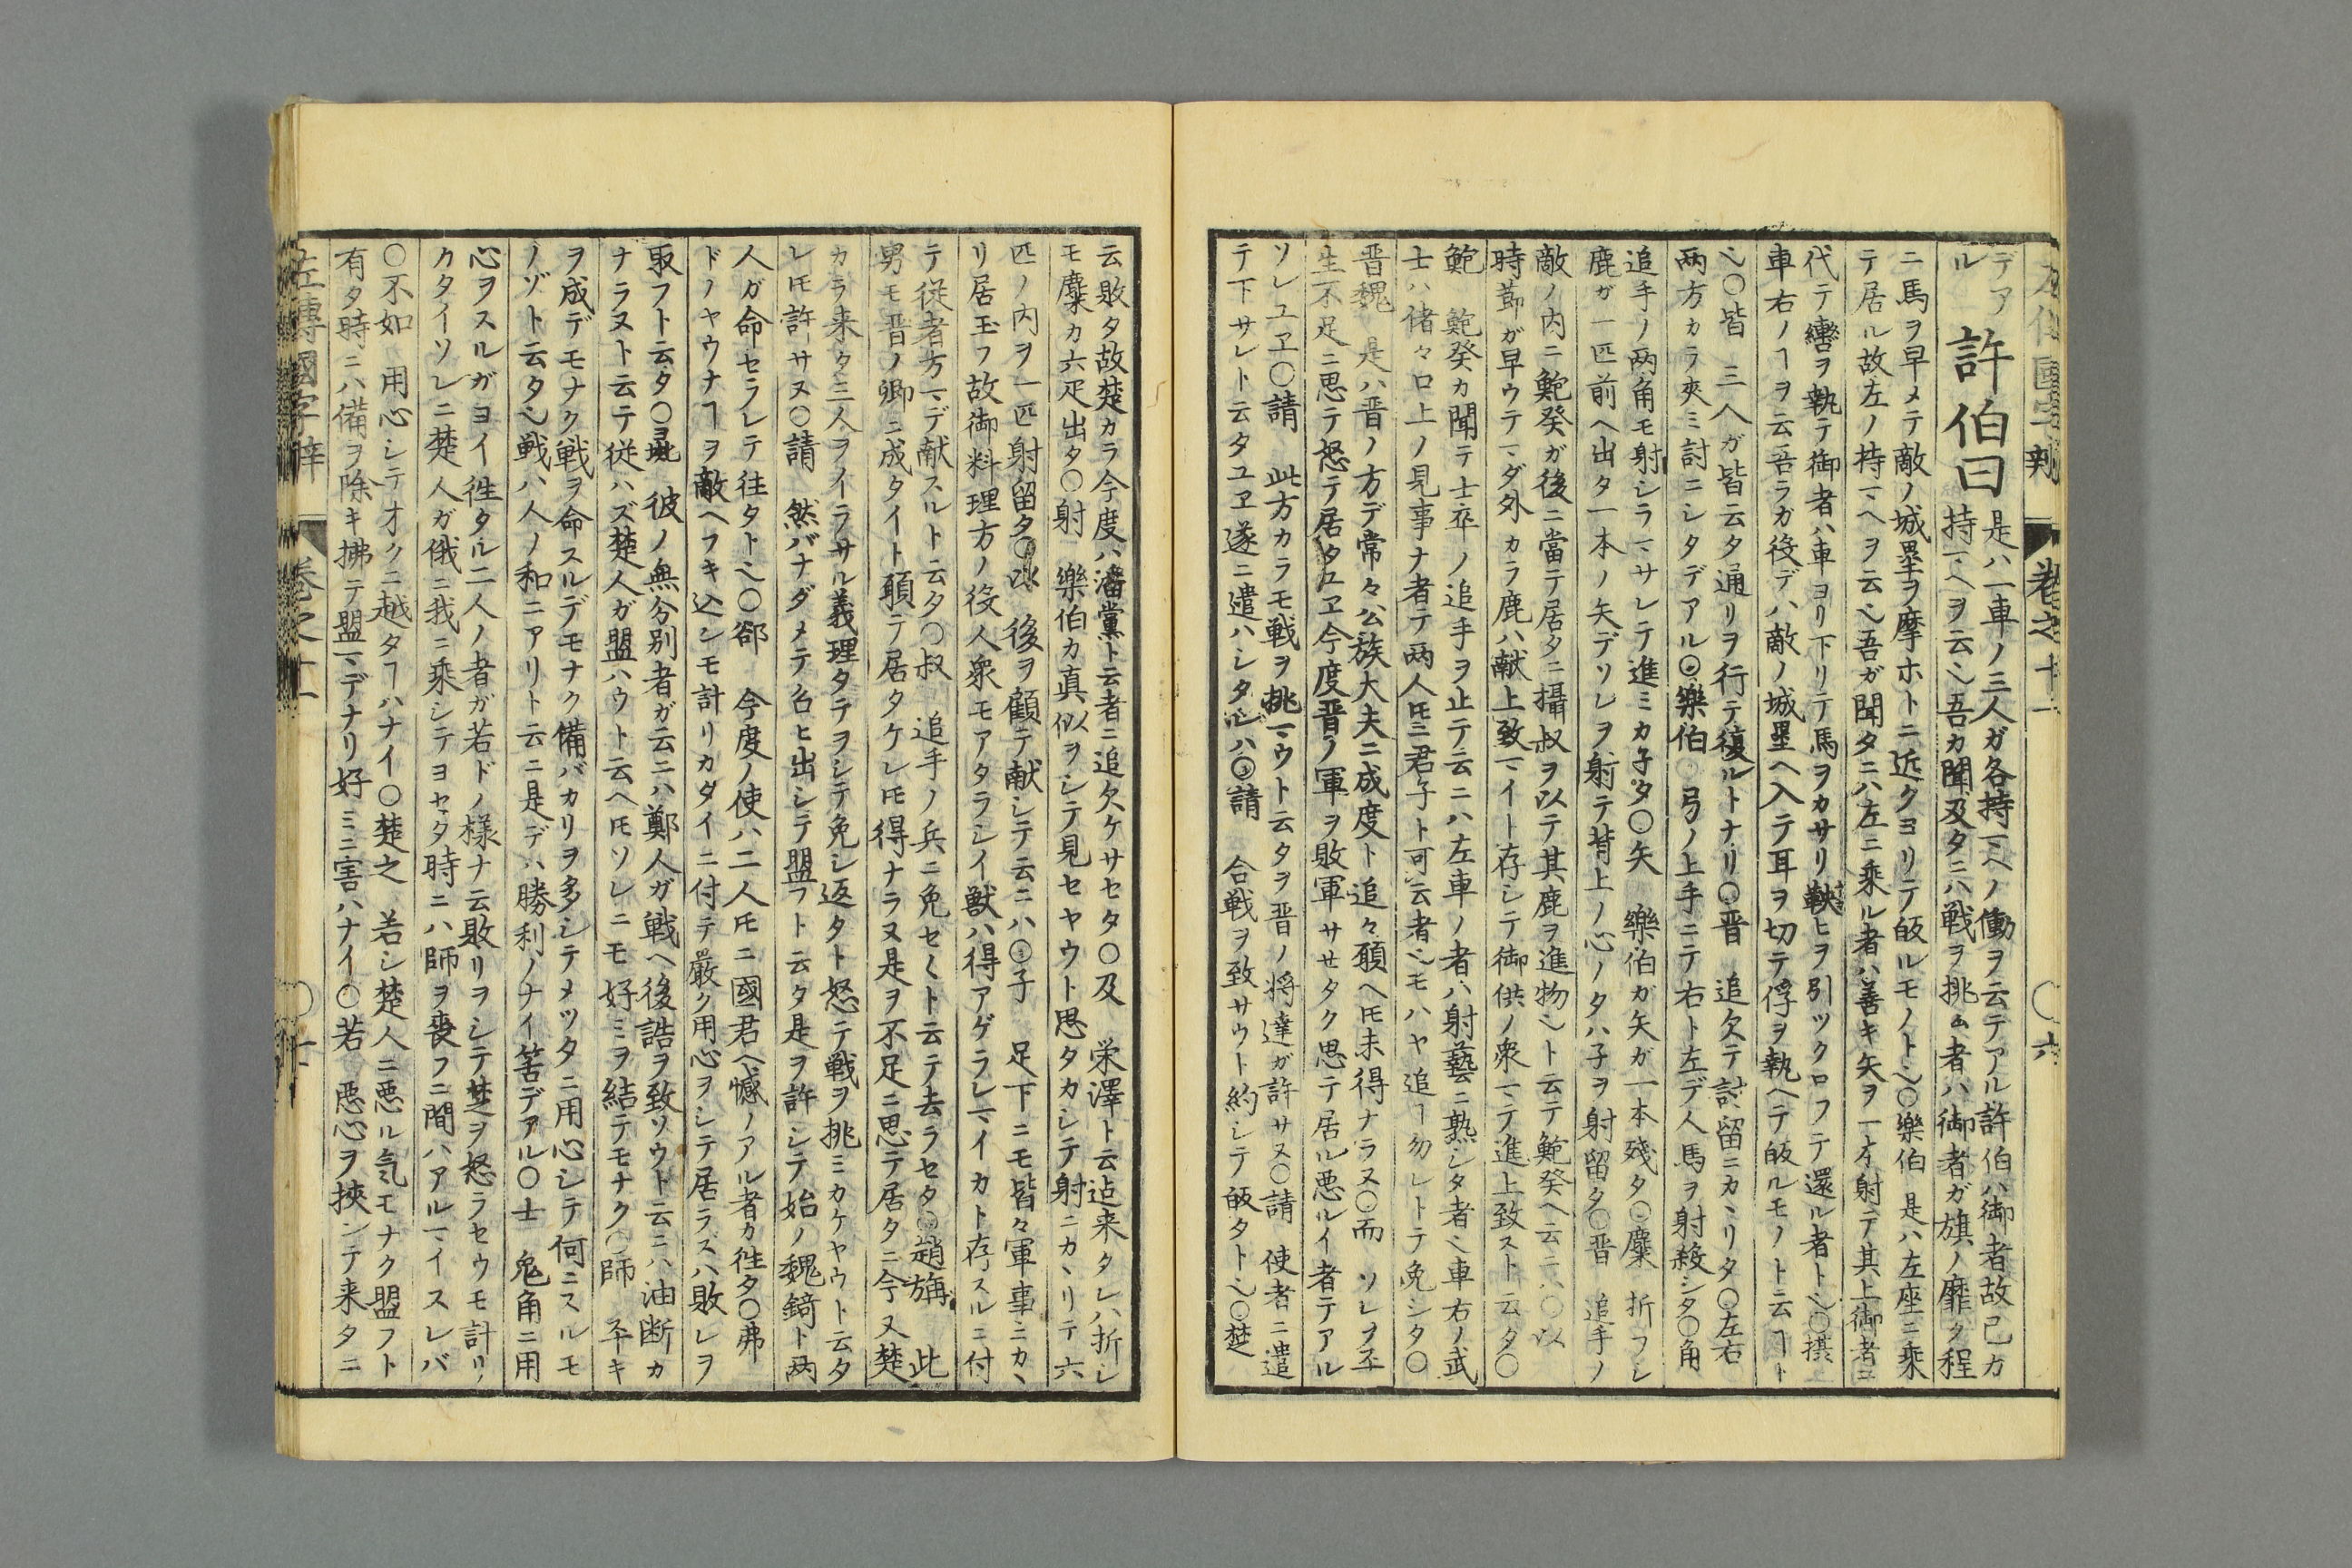 左傳國字辨 卷之十一 〇六
デア
ル
許伯曰
是ハ一車ノ三人ガ各持マヘノ働ヲ云テアル許伯ハ御者故己カ
持マヘヲ云ヘ吾カ聞及タニハ戦ヲ挑ム者ハ御者ガ旗ノ靡ク程
ニ馬ヲ早メテ敵ノ城壘ヲ摩ホトニ近クヨリテ皈ルモノトヘ〇樂伯 是ハ左座ニ乘
テ居ル故左ノ持マヘヲ云ヘ吾ガ聞タニハ左ニ乘ル者ハ善キ矢ヲ一本射テ其上御者ニ
代テ轡ヲ執テ御者ハ車ヨリ下リテ馬ヲカサリ鞅ヒヲ引ツクロフテ還ル者トヘ〇摂
車右ノヿヲ云吾ラガ役デハ敵ノ城壘ヘ入テ耳ヲ切テ俘ヲ執ヘテ皈ルモノト云ヿト
ヘ〇皆 三人ガ皆云タ通リヲ行テ復ルトナリ〇晋 追欠テ討留ニカヽリタ〇左右
両方カラ夾ミ討ニシタデアル〇樂伯 弓ノ上手ニテ右ト左デ人馬ヲ射殺シタ〇角
追手ノ両角モ射シラマサレテ進ミカ子タ〇矢 樂伯ガ矢ガ一本殘タ〇麋 折フシ
鹿ガ一匹前ヘ出タ一本ノ矢デソレヲ射テ背上ノ心ノタハ子ヲ射留タ〇晋 追手ノ
敵ノ内ニ鮑癸ガ後ニ當テ居タニ攝叔ヲ以テ其鹿ヲ進物ヘト云テ鮑癸ヘ云ニハ〇以
時莭ガ早ウテマダ外カラ鹿ハ献上致マイト存シテ御供ノ衆マテ進上致スト云タ〇
鮑 鮑癸カ聞テ士卒ノ追手ヲ止テ云ニハ左車ノ者ハ射藝ニ熟シタ者ヘ車右ノ武
士ハ偖々口上ノ見事ナ者テ両人𪜈君子ト可云者ヘモハヤ追ヿ勿レトテ免シタ〇
晋魏 是ハ晋ノ方デ常々公族大夫ニ成度ト追々願ヘ𪜈未得ナラヌ〇而 ソレヲ平
生不足ニ思テ怒テ居タユヱ今度晋ノ軍ヲ敗軍サセタク思テ居ル悪ルイ者テアル
ソレユヱ〇請 此方カラモ戦ヲ挑マウト云タヲ晋ノ将達ガ許サヌ〇請 使者ニ遣
テ下サレト云タユヱ遂ニ遣ハシタハ〇請 合戦ヲ致サウト約シテ皈タトヘ〇楚
云敗タ故楚カラ今度ハ潘黨ト云者ニ追欠ケサセタ〇及 栄澤ト云迠来タレハ折レ
モ麋カ六疋出タ〇射 樂伯カ真似ヲシテ見セヤウト思タカシテ射ニカヽリテ六
匹ノ内ヲ一匹射留タ〇以 後ヲ顧テ献シテ云ニハ〇子 足下ニモ皆々軍事ニカヽ
リ居玉フ故御料理方ノ役人衆モアタラシイ獣ハ得アゲラレマイカト存スルニ付
テ従者方マデ献スルト云タ〇叔 追手ノ兵ニ免セヽト云テ去ラセタ〇趙旃 此
男モ晋ノ卿ニ成タイト願テ居タケレ𪜈得ナラヌ是ヲ不足ニ思テ居タニ今又楚
カラ来タ三人ヲイラサル義理タテヲシテ免シ返タト怒テ戦ヲ挑ミカケヤウト云タ
レ𪜈許サヌ〇請 然バナダメテ召ヒ出シテ盟フト云タ是ヲ許シテ始ノ魏錡ト両
人ガ命セラレテ往タトヘ〇郤 今度ノ使ハ二人𪜈ニ國君ヘ憾ノアル者カ徃タ〇弗
ドノヤウナヿヲ敵ヘフキ込シモ計リカダイニ付テ嚴ク用心ヲシテ居ラズハ敗レヲ
取フト云タ〇彘 彼ノ無分別者ガ云ニハ鄭人ガ戦ヘ後誥ヲ致ソウト云ニハ油断カ
ナラヌト云テ従ハズ楚人ガ盟ハウト云ヘ𪜈ソレニモ好ミヲ結テモナク〇師 卒キ
ヲ成デモナク戦ヲ命スルデモナク備バカリヲ多シテメツタニ用心シテ何ニスルモ
ノゾト云タヘ戦ハ人ノ和ニアリト云ニ是デハ勝利ノナイ筈デアル〇士 兎角ニ用
心ヲスルガヨイ徃タル二人ノ者ガ若ドノ様ナ云敗リヲシテ楚ヲ怒ラセウモ計リ
カタイソレニ楚人ガ俄ニ我ニ乘シテヨセタ時ニハ師ヲ喪フニ間ハアルマイスレバ
〇不如 用心シテオクニ越タヿハナイ〇楚之 若シ楚人ニ悪ル気モナク盟フト
有タ時ニハ備ヲ除キ拂テ盟マデナリ好ミニ害ハナイ〇若 悪心ヲ挾ンテ来タニ
左傳國字辨 卷之十一